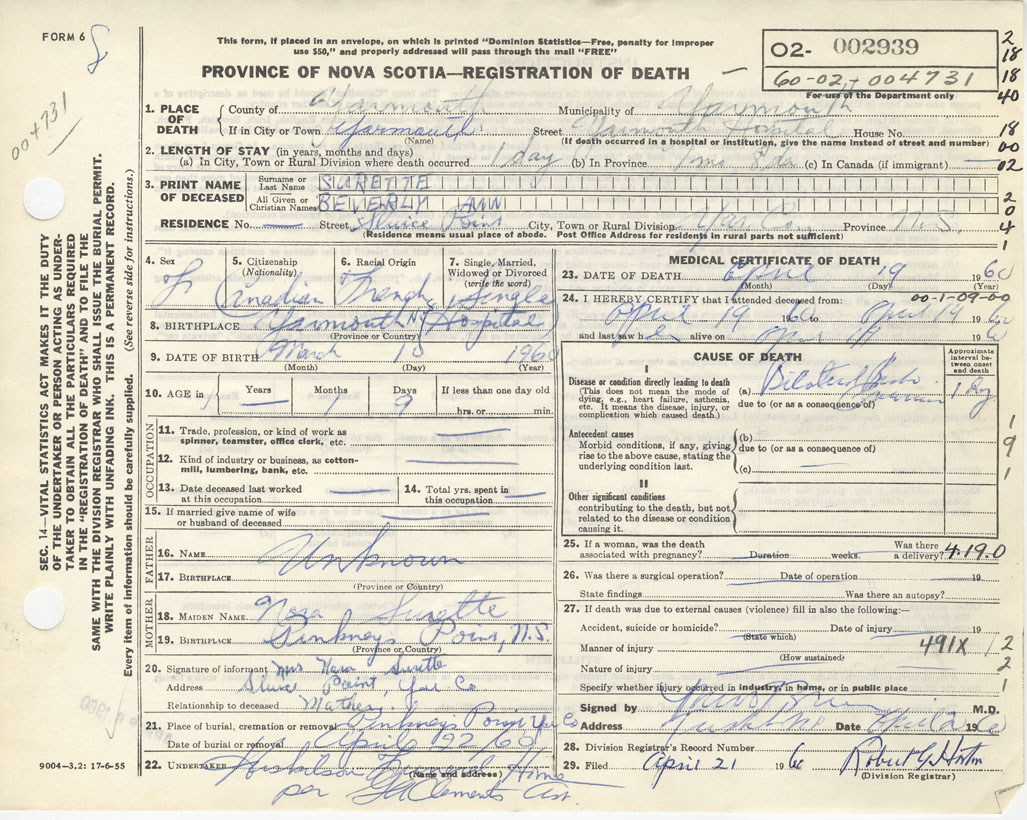 FORM 6
This form, if placed in an envelope, on which is printed "Dominion Statistics—Free, penalty for improper
use $50," and properly addressed will pass through the mail "FREE"
PROVINCE OF NOVA SCOTIA—REGISTRATION OF DEATH
O2- 002939
60-02-004731
For use of the Department only
004731
2
18
18
40
18
00
02
2
0
4
1
1. PLACE OF DEATH
County of Yarmouth Municipality of Yarmouth
If in City or Town Yarmouth Street Yarmouth Hospital House No.
(Name) (If death occurred in a hospital or institution, give the name instead of street and number)
2. LENGTH OF STAY (in years, months and days)
(a) In City, Town or Rural Division where death occurred 1 day (b) In Province (c) In Canada (if immigrant)
3. PRINT NAME OF DECEASED
Surname or Last Name SURETTE
All Given or Christian Names BEVERLY ANN
RESIDENCE No. Street Sluice Point City, Town or Rural Division Yar. Co. Province N.S.
(Residence means usual place of abode. Post Office Address for residents in rural parts not sufficient)
4. Sex F
5. Citizenship (Nationality) Canadian
6. Racial Origin French
7. Single, Married, Widowed or Divorced (write the word) Single
8. BIRTHPLACE Yarmouth NS (Hospital)
(Province or Country)
9. DATE OF BIRTH March 10 1960
(Month) (Day) (Year)
10. AGE in Years Months Days If less than one day old
1 9 hrs. or min.
OCCUPATION
11. Trade, profession, or kind of work as spinner, teamster, office clerk, etc.
12. Kind of industry or business, as cotton-mill, lumbering, bank, etc.
13. Date deceased last worked at this occupation
14. Total yrs. spent in this occupation
15. If married give name of wife or husband of deceased
FATHER
16. NAME Unknown
17. BIRTHPLACE
(Province or Country)
MOTHER
18. MAIDEN NAME Nora Surette
19. BIRTHPLACE Pinkneys Point, N.S.
(Province or Country)
20. Signature of informant Mrs Surette
Address Sluice Point, Yar Co
Relationship to deceased Mother
21. Place of burial, cremation or removal Pinkneys Point Yar Co
Date of burial or removal April 22/60
22. UNDERTAKER Huskilson Funeral Home
(Name and address)
per Clements Ast.
MEDICAL CERTIFICATE OF DEATH
23. DATE OF DEATH April 19 1960
(Month) (Day) (Year)
24. I HEREBY CERTIFY that I attended deceased from: 00-1-09-00
April 19 1960 to April 19 1960
and last saw h alive on 19
CAUSE OF DEATH
Approximate interval between onset and death
I
Disease or condition directly leading to death
(This does not mean the mode of dying, e.g., heart failure, asthenia, etc. It means the disease, injury, or complication which caused death.)
(a) Bilateral 1 Day
due to (or as a consequence of)
Antecedent causes
Morbid conditions, if any, giving rise to the above cause, stating the underlying condition last.
(b)
due to (or as a consequence of)
(c)
II
Other significant conditions
contributing to the death, but not related to the disease or condition causing it.
1
9
1
25. If a woman, was the death associated with pregnancy? Duration weeks. Was there a delivery? 4.19.0
26. Was there a surgical operation? Date of operation 19
State findings Was there an autopsy?
27. If death was due to external causes (violence) fill in also the following:—
Accident, suicide or homicide? Date of injury 19
(State which)
Manner of injury 491X 1 2
(How sustained)
Nature of injury 2
Specify whether injury occurred in industry, in home, or in public place 1
Signed by M.D.
Address Date 19
28. Division Registrar's Record Number
29. Filed April 21 1960
(Division Registrar)
SEC. 14—VITAL STATISTICS ACT MAKES IT THE DUTY
OF THE UNDERTAKER OR PERSON ACTING AS UNDER-
TAKER TO OBTAIN ALL THE PARTICULARS REQUIRED
IN THE "REGISTRATION OF DEATH" AND TO FILE THE
SAME WITH THE DIVISION REGISTRAR WHO SHALL ISSUE THE BURIAL PERMIT.
WRITE PLAINLY WITH UNFADING INK. THIS IS A PERMANENT RECORD.
Every item of information should be carefully supplied. (See reverse side for instructions.)
9004—3.2: 17-6-55